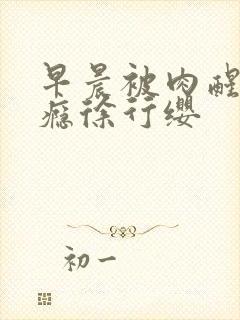 早晨被肉醒
瘾徐行缨
初一